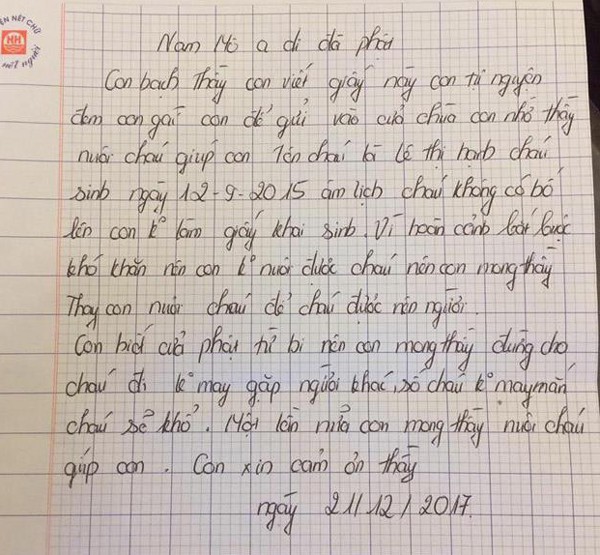 ỆN NÉT CHỮ
HH
nết người
Nam Mô a di đà phật
Con bạch Thầy con viết giấy này con tự nguyện
đem con gái con để gửi vào cửa chùa con nhờ thầy
nuôi cháu giúp con Tên cháu là lê thị hạnh cháu
sinh ngày 12-9-2015 âm lịch cháu không có bố
lên con k° làm giấy khai sinh. Vì hoàn cảnh bắt buộc
khó khăn nên con k° nuôi được cháu nên con mong thầy
Thay con nuôi cháu để cháu được nên người.
Con biết cửa phật từ bi nên con mong thầy đừng cho
cháu đi k° may gặp người khác, số cháu k° may mắn
cháu sẽ khổ. Một lần nữa con mong thầy nuôi cháu
giúp con. Con xin cảm ơn thầy
ngày 21/12/2017.